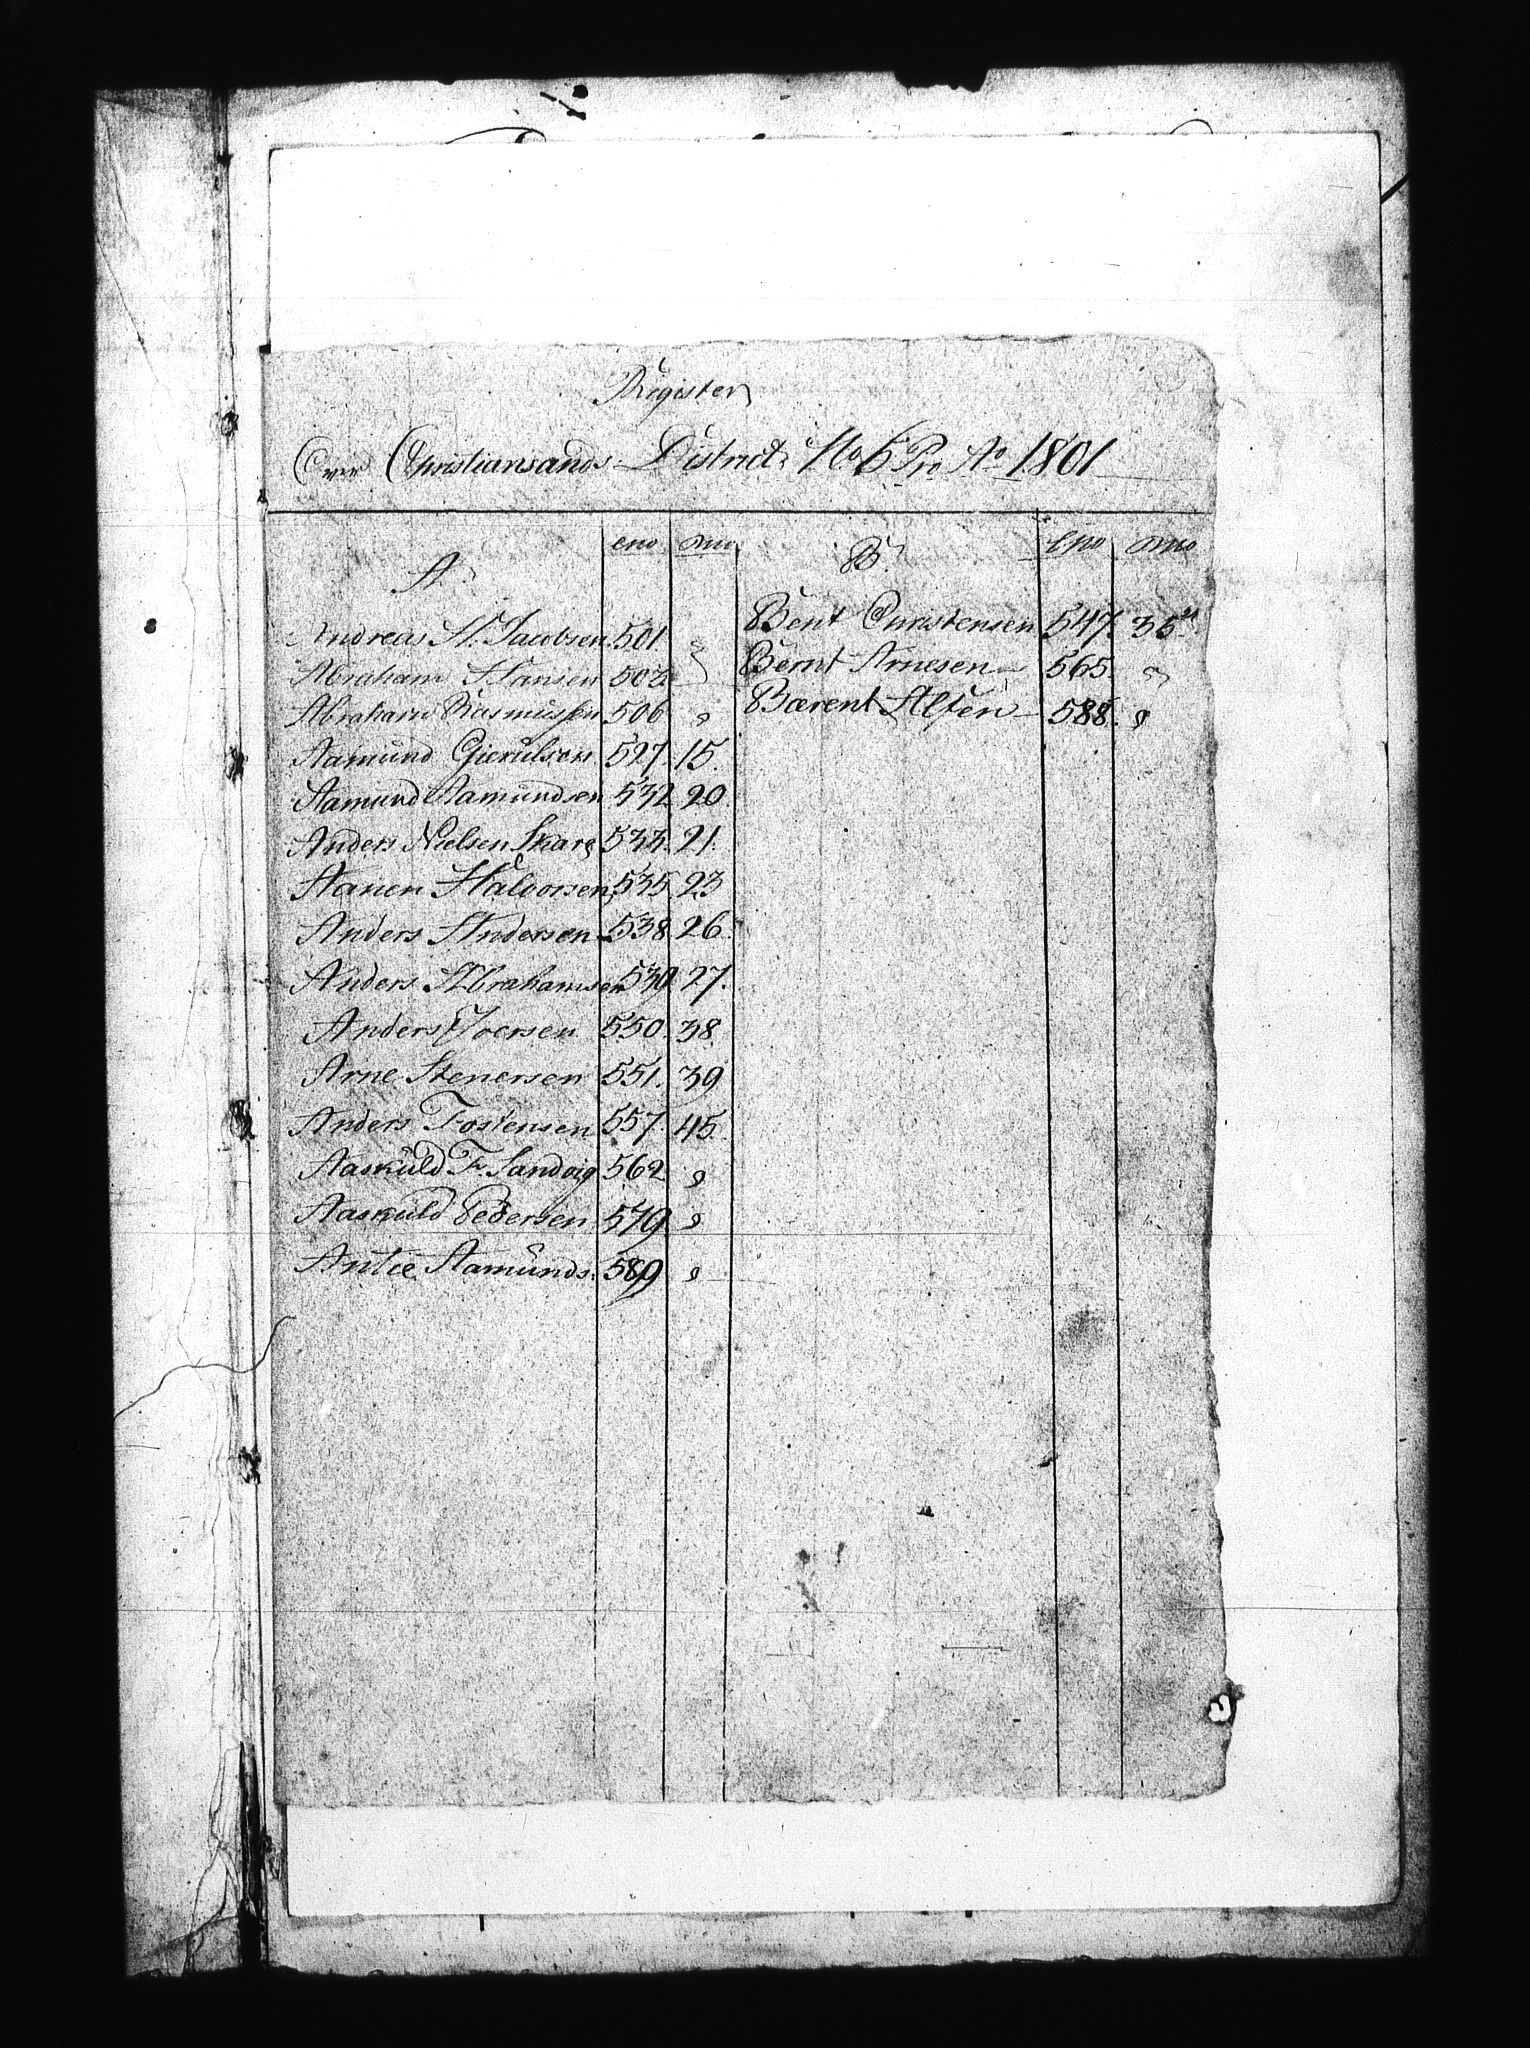 Register
Over Christiansands District No 5 Pro Ao 1801
A
eno mo
Andreas H. Jacobsen 501 "
Abraham Hansen 502 "
Abraham Rasmussen 506 "
Aamund Gierulsen 527 15.
Aamund Aamundsen 532 20.
Anders Nielsen Skare 533. 21.
Aanen Halvorsen 535 23
Anders Andersen 538 26.
Anders Abrahamsen 539 27.
Anders Joersen 550. 38
Arne Stenersen 551. 39
Anders Tostensen 557. 45.
Aaskuld F. Sandvig 562 "
Aaskuld Pedersen 579 "
Antie Aamunds. 589 "
B.
eno mo
Bent Christensen 547. 35
Bernt Arnesen 565. "
Bærent Alfsen 588. "